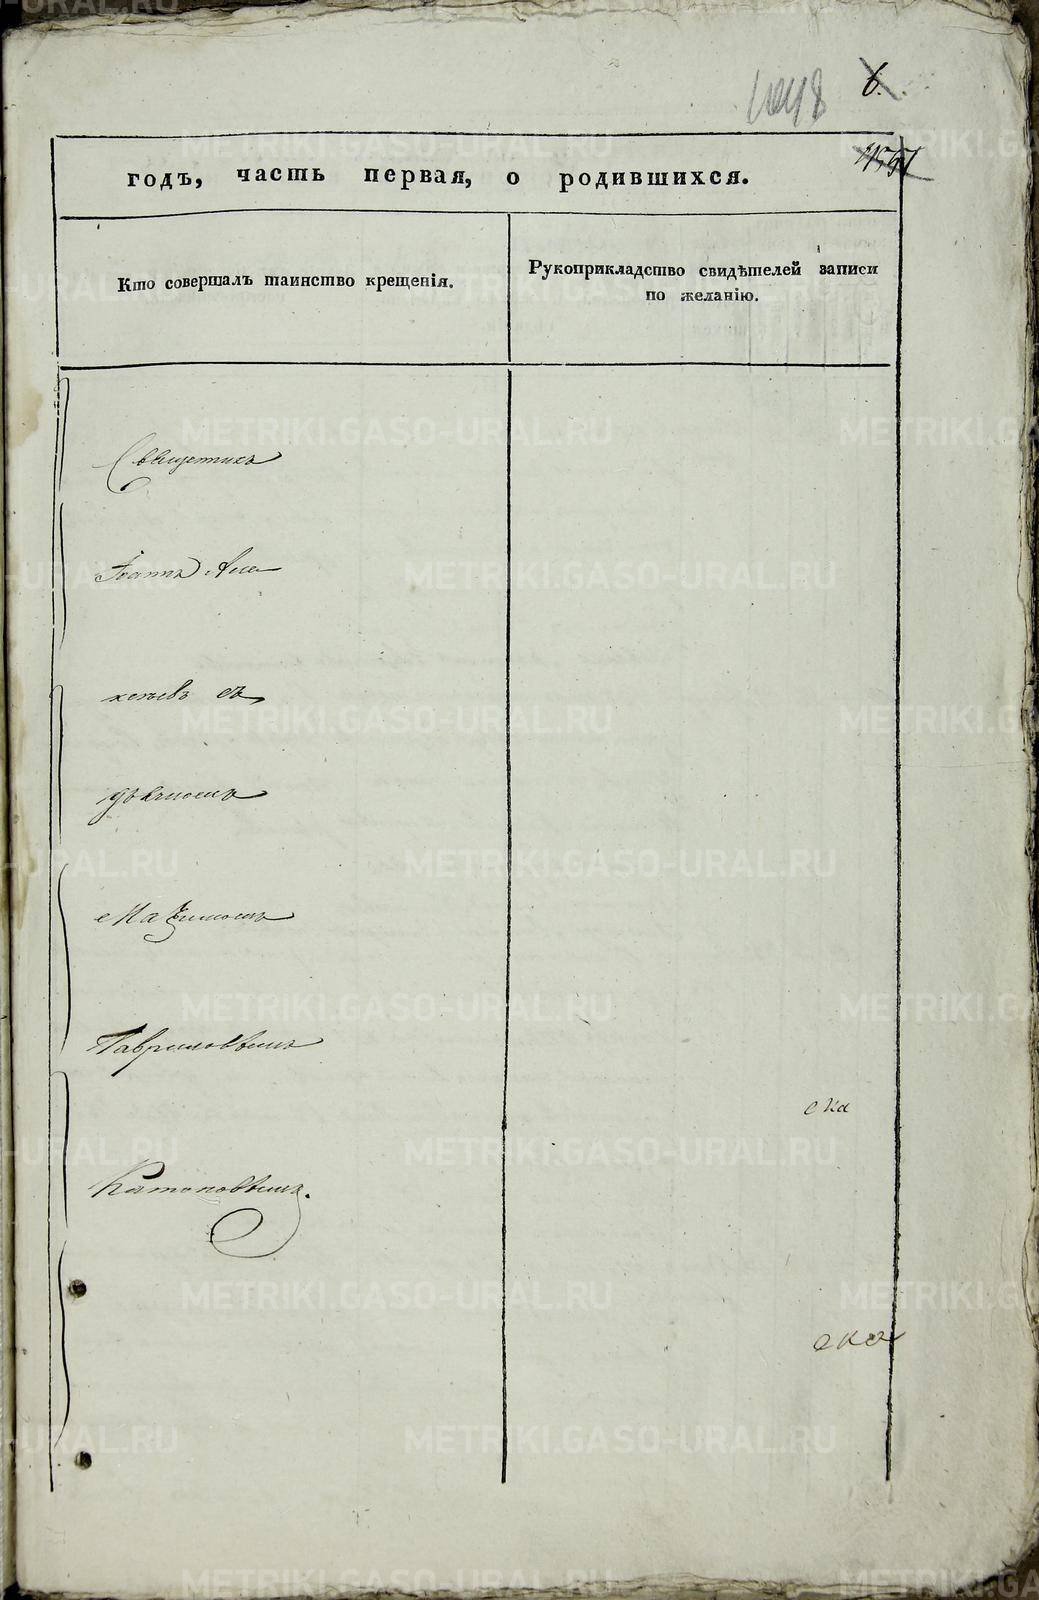 6.
годъ, часть первая, о родившихся.
Кто совершалъ таинство крещенія.
Рукоприкладство свидѣтелей записи
по желанію.
Священникъ
Іоаннъ Але
ксѣевъ съ
дьячкомъ
Максимомъ
Гавриловымъ
Катоповымъ.
ска
ска
METRIKI.GASO-URAL.RU